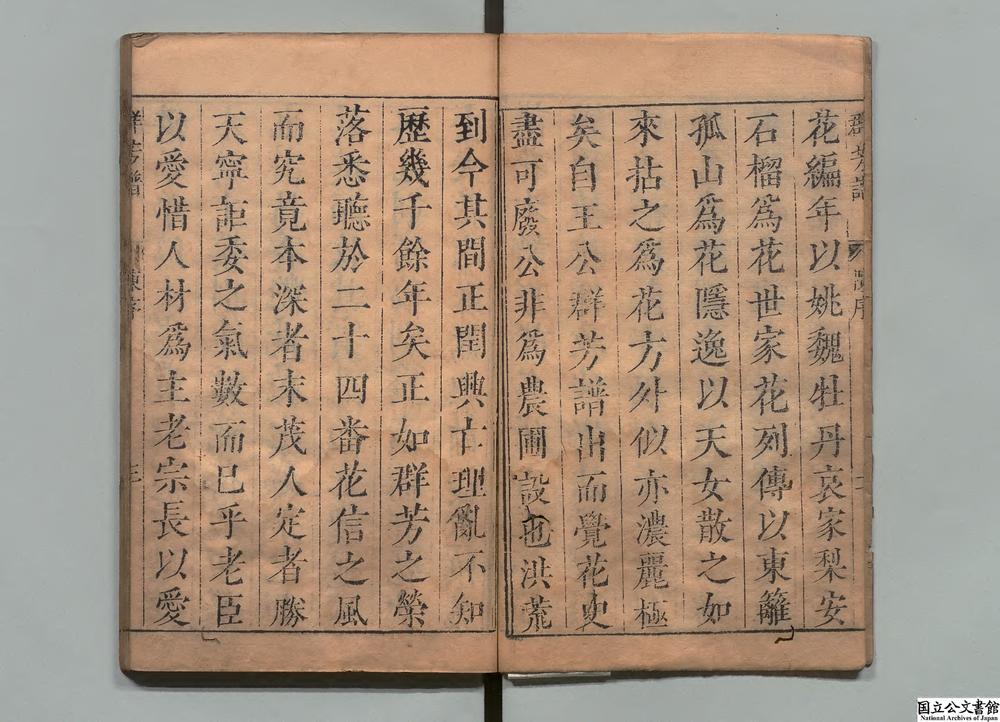 群芳譜 陳序
花編年以姚魏牡丹哀家梨安
石榴為花世家花列傳以東籬
孤山為花隱逸以天女散之如
來拈之為花方外似亦濃麗極
矣自王公群芳譜出而覺花史
盡可廢公非為農圃設也洪荒
到今其間正閏興亡理亂不知
歷幾千餘年矣正如群芳之榮
落悉聽於二十四番花信之風
而究竟本深者末茂人定者勝
天寧詎委之氣數而已乎老臣
以愛惜人材為主老宗長以愛
群芳譜 陳序 三
国立公文書館
National Archives of Japan